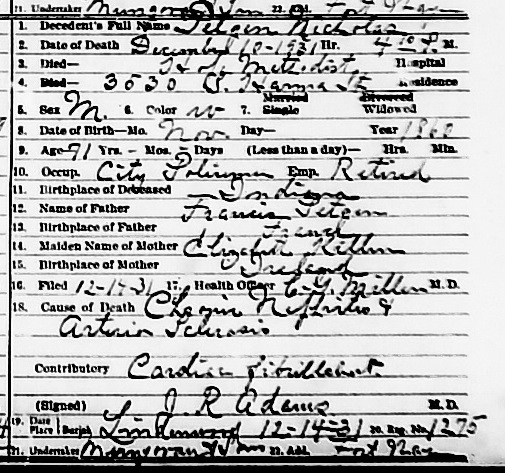 21. Undertaker 22. Add. Fort Wayne
1. Decedent's Full Name Tetgen Nicholas
2. Date of Death December 10-1931 Hr. 4 P. M.
3. Died— Methodist Hospital
4. Died— 3530 S. Hanna St Residence
5. Sex M. 6. Color w 7. Married Single Divorced Widowed
8. Date of Birth—Mo. Nov. Day— Year 1860
9. Age 71 Yrs. – Mos. – Days (Less than a day)— Hrs. Min.
10. Occup. City Policeman Emp. Retired
11. Birthplace of Deceased Indiana
12. Name of Father Francis Tetgen
13. Birthplace of Father France
14. Maiden Name of Mother Elizabeth
15. Birthplace of Mother Ireland
16. Filed 12-14-31 17. Health Officer Miller M. D.
18. Cause of Death Nephritis &
Arterio Sclerosis
Contributory Cardiac
(Signed) J. R Adams M. D.
19. Date Place Burial Lindenwood 12-14-31 20. Reg. No. 1275
21. Undertaker 22. Add. Fort Way